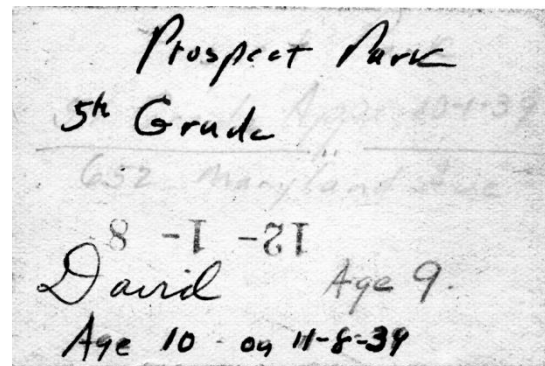 Prospect Park
5th Grade
10-1-39
652 Maryland Ave
12-1-8
David Age 9.
Age 10 on 11-8-39